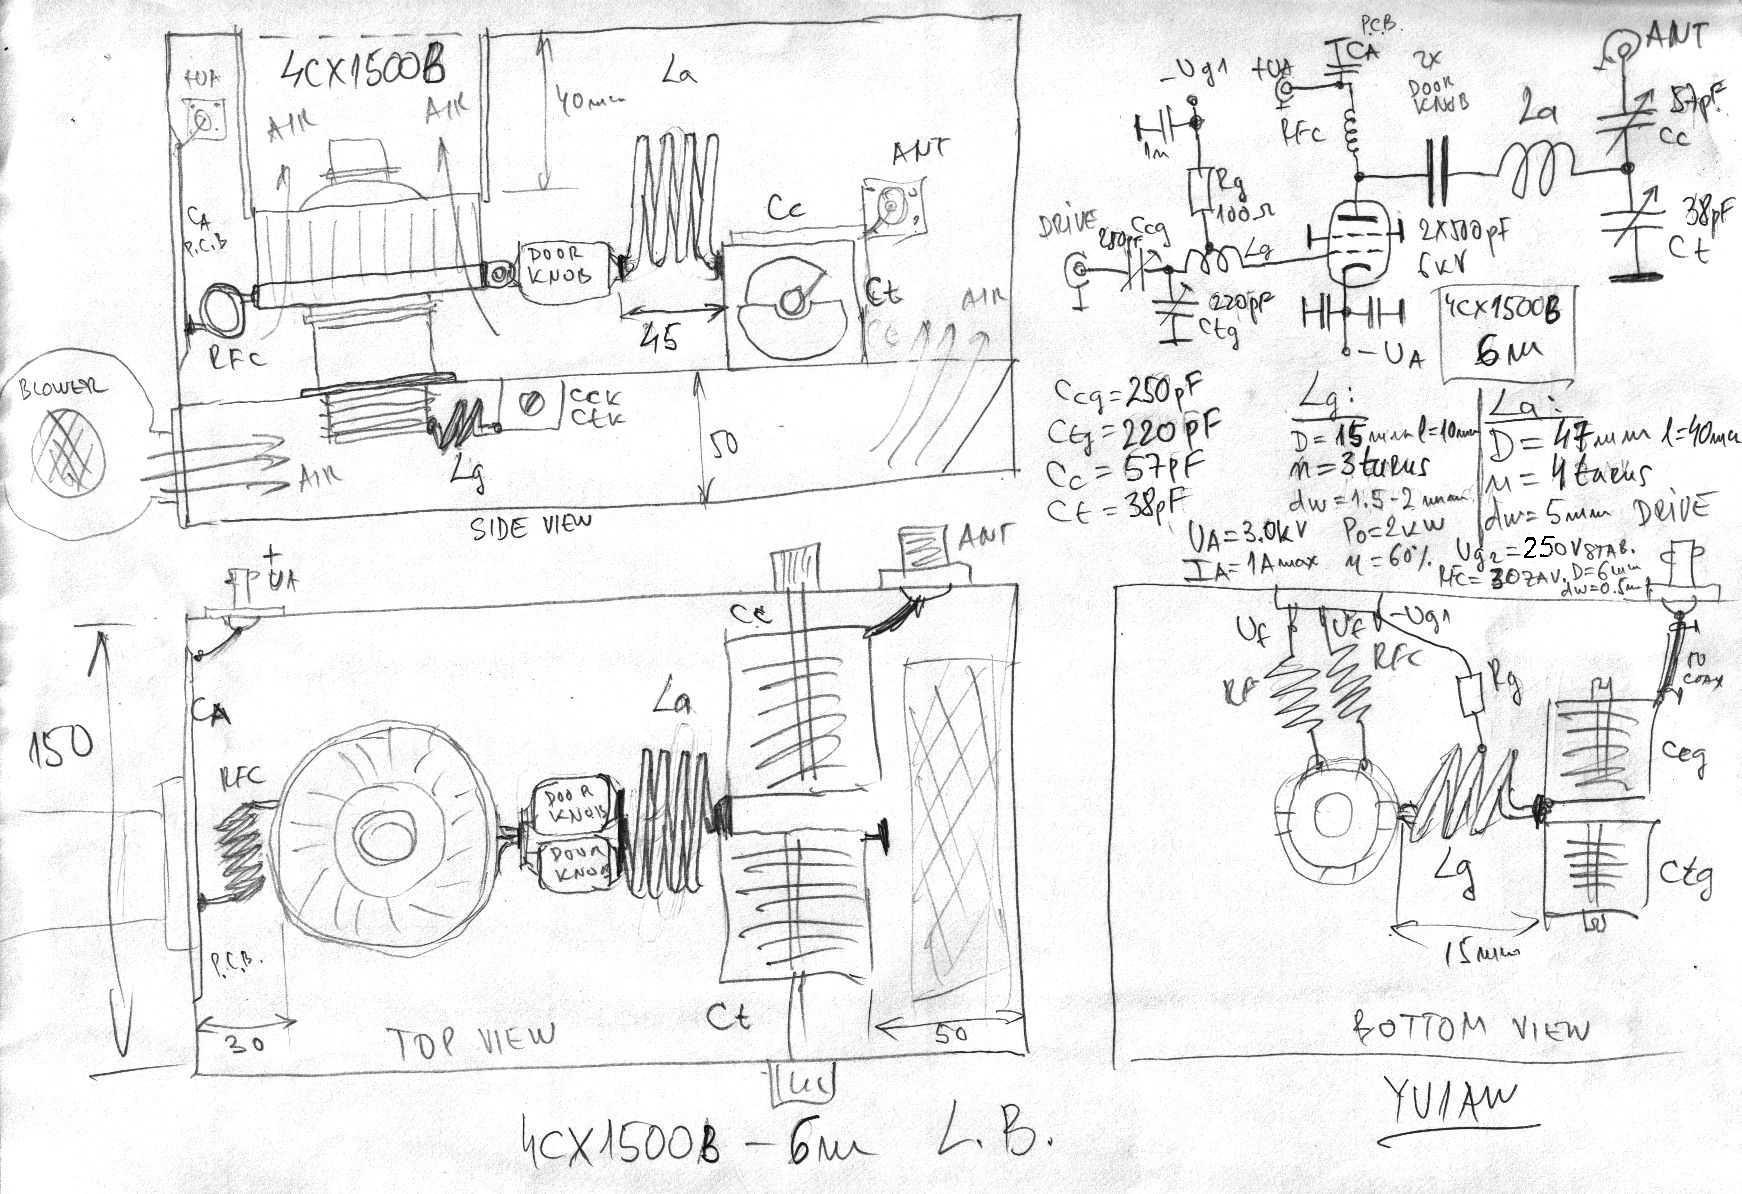 4CX1500B
+UA
AIR
AIR
40mm
La
ANT
Cc
CA
P.C.B
DOOR
KNOB
RFC
45
Ct
Ct
AIR
BLOWER
AIR
CCK
CTK
Lg
50
SIDE VIEW
P.C.B.
CA
-Ug1
+UA
RFC
1n
Rg
100Ω
2X
DOOR
KNOB
La
ANT
57pF
Cc
38pF
Ct
DRIVE
250pF
Ccg
Lg
220pF
Ctg
2X500pF
6kV
-UA
4CX1500B
6m
Ccg=250pF
Ctg=220pF
Cc=57pF
Ct=38pF
Lg:
D=15mm l=10mm
n=3turns
dw=1.5-2mm
La:
D=47mm l=40mm
n=4turns
dw=5mm
UA=3.0kV Po=2kW
IA=1Amax η=60%
Ug2=250VSTAB.
RFC=30ZAV. D=6mm
dw=0.5mm
DRIVE
+
UA
ANT
Cc
CA
150
RFC
La
DOOR
KNOB
DOOR
KNOB
P.C.B.
30
TOP VIEW
Ct
50
Uf
Uf
-Ug1
RF
RFC
Rg
COAX
Ccg
Lg
Ctg
15mm
BOTTOM VIEW
4CX1500B-6m L.B.
YU1AW